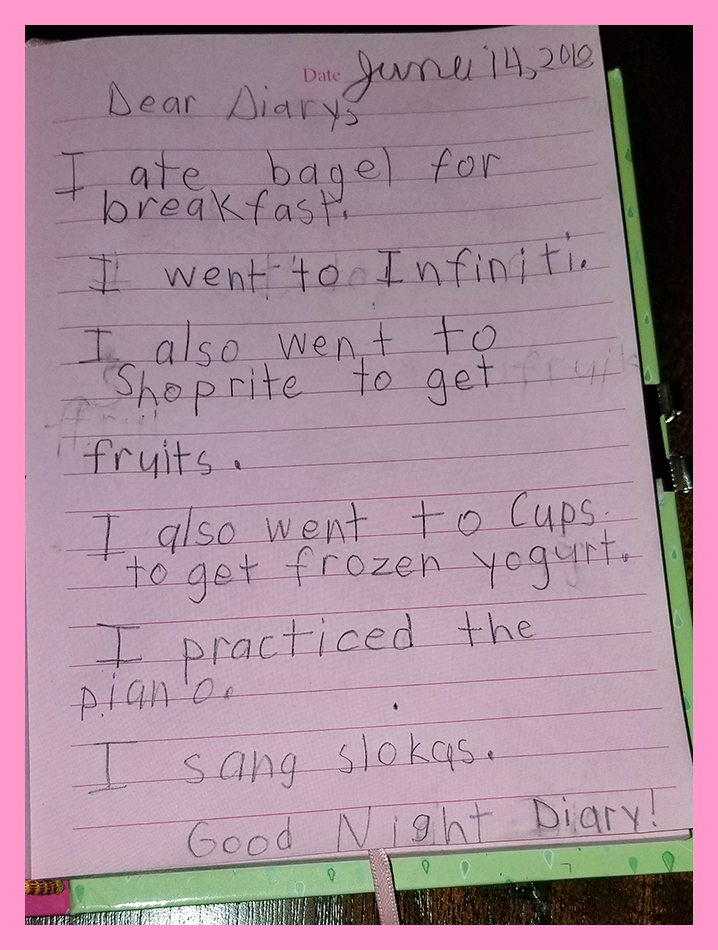 Date June 14, 2010
Dear Diary,
I ate bagel for
breakfast.
I went to Infiniti.
I also went to
Shoprite to get
fruits.
I also went to Cups
to get frozen yogurt.
I practiced the
piano.
I sang slokas.
Good Night Diary!